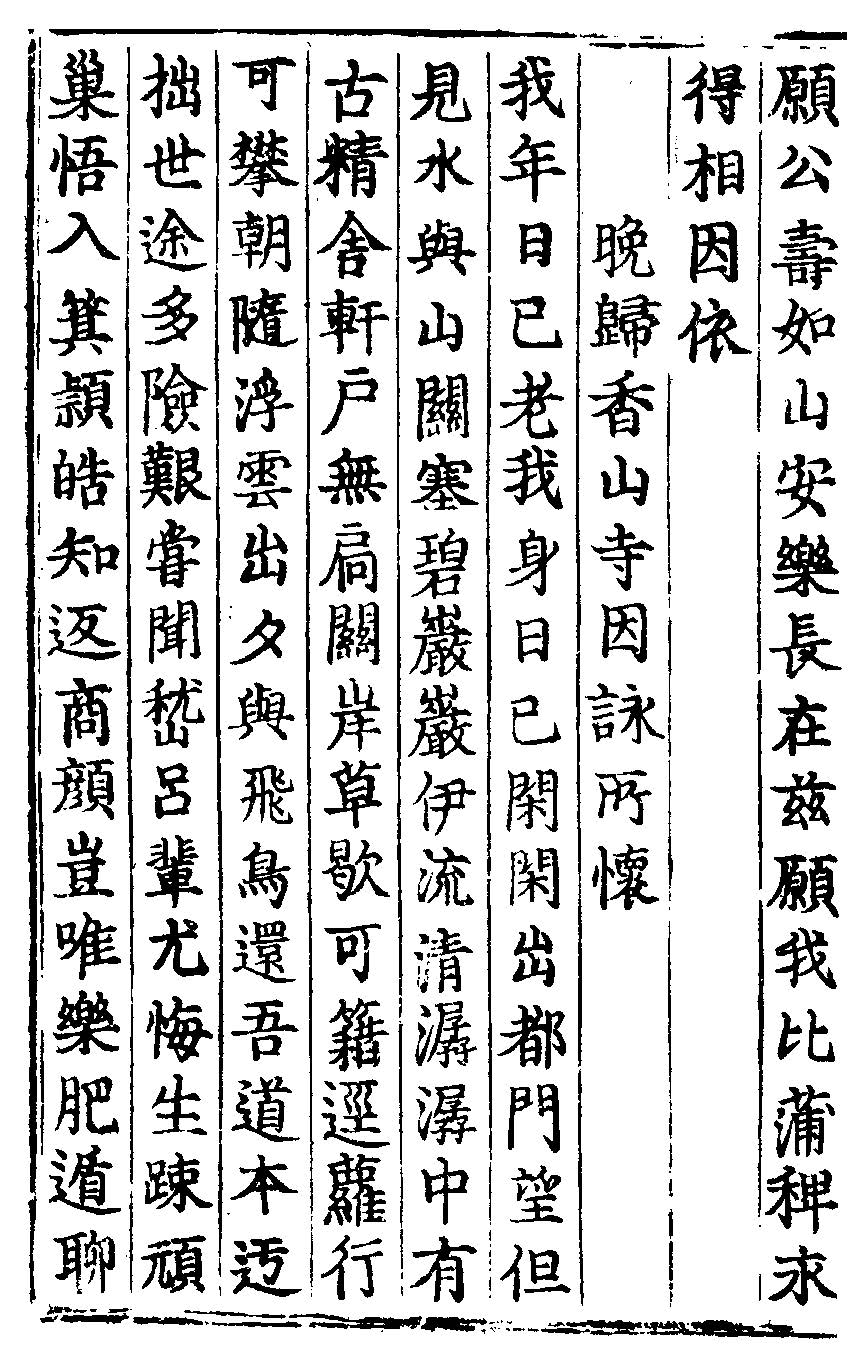 願公壽如山安樂長在茲願我比蒲稗永
得相因依
晚歸香山寺因詠所懷
我年日已老我身日已閑閑出都門望但
見水與山關塞碧巖巖伊流清潺潺中有
古精舍軒戶無扃關岸草歇可籍逕蘿行
可攀朝隨浮雲出夕與飛鳥還吾道本迃
拙世途多險艱嘗聞嵇呂輩尤悔生踈頑
巢悟入箕潁皓知返商顏豈唯樂肥遁聊